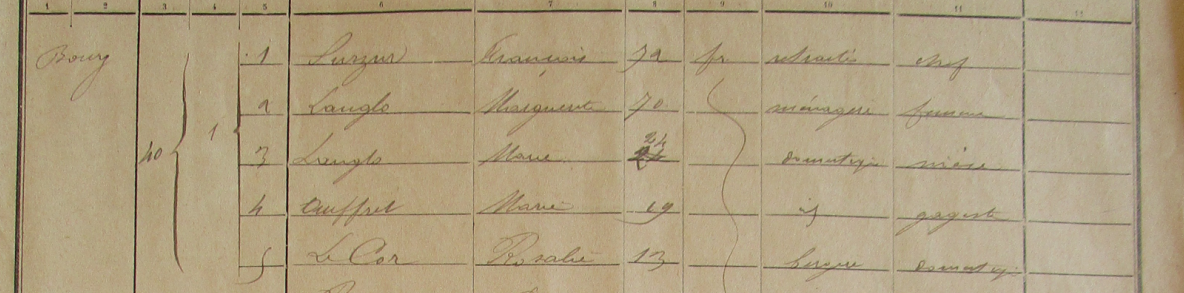 1 2 3 4 5 6 7 8 9 10 11 12
Bourg 1 Surzur François 72 fr retraité chef
2 Langlo Marguerite 70 ménagère femme
40 1 3 Langlo Marie 24 domestique nièce
4 Auffret Marie 19 id gagiste
5 Le Cor Rosalie 13 bergère domestique